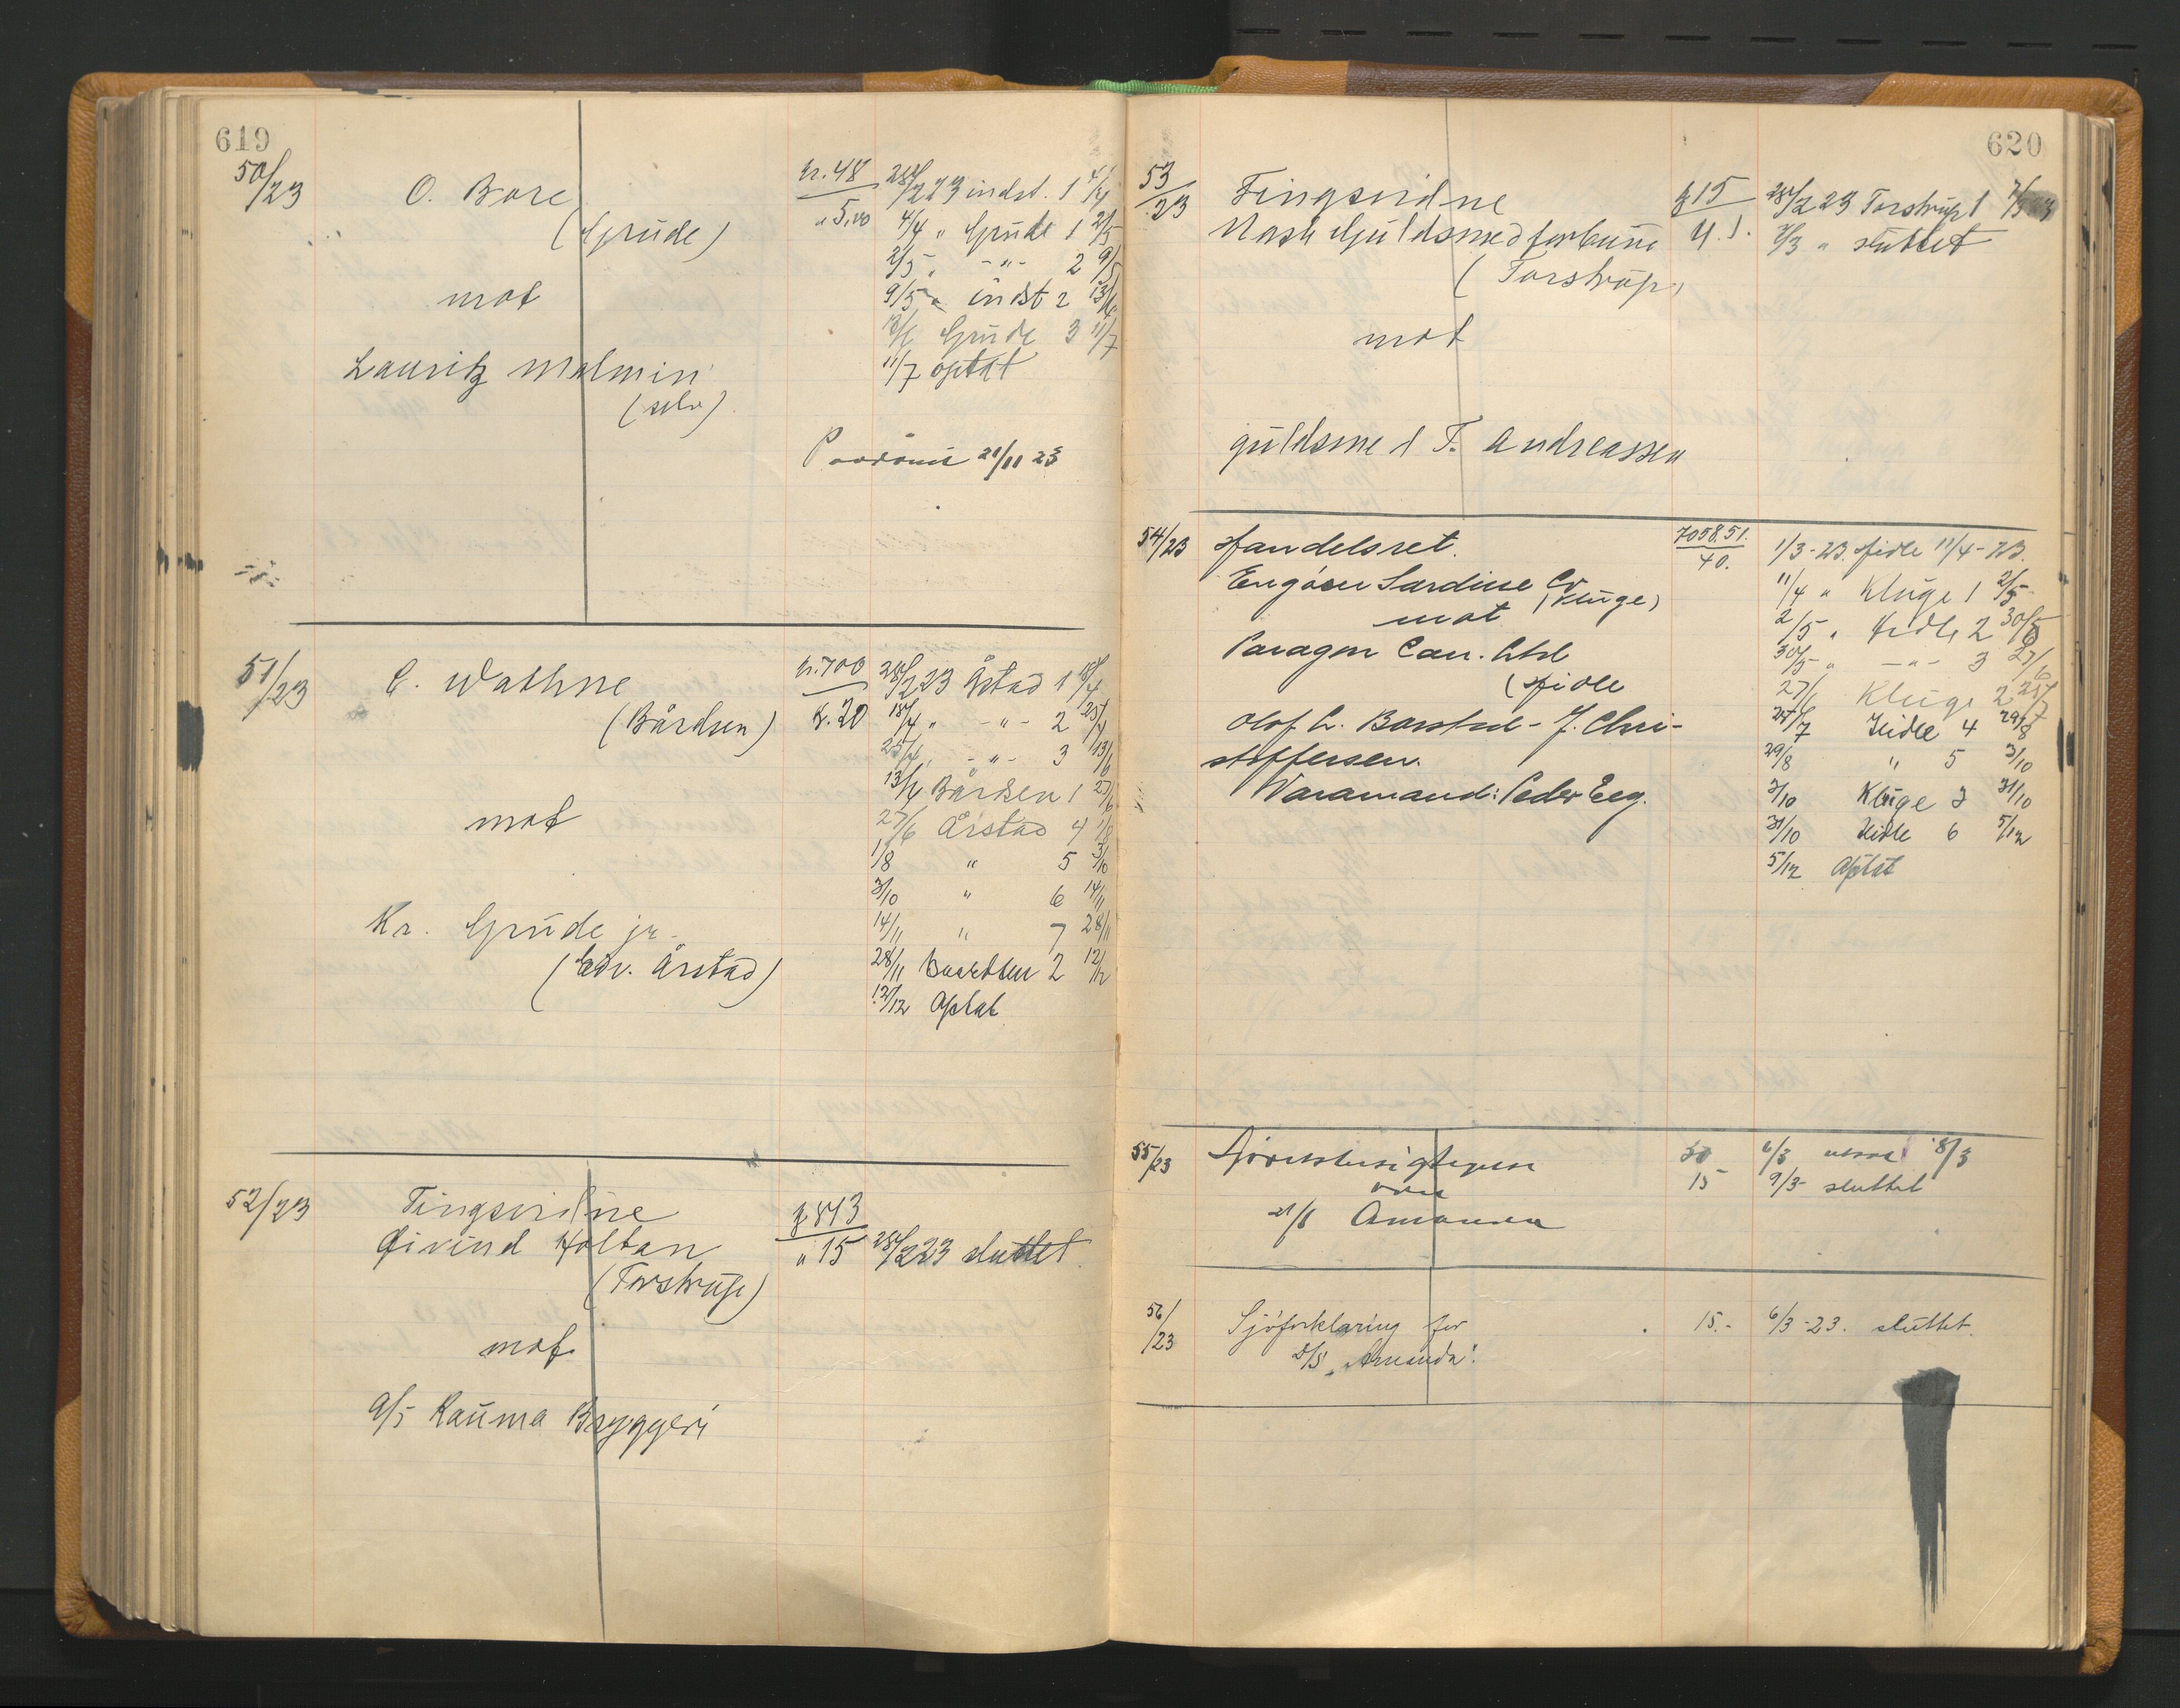 619
50/23
O. Bore
(Grude)
mot
Lauritz Malmin
(selv)
kr. 48
" 5,00
28/2 23 indst. 1 4/4
4/4 " Grude 1 2/5
2/5 " -"- 2 9/5
9/5 " indst 2 13/6
13/6 Grude 3 11/7
11/7 optat
21/11 23
51/23
E. Wathne
(Bårdsen)
mot
Kr. Grude jr.
(Edv. Årstad)
kr. 700
k. 20
28/2 23 Årstad 1 18/4
18/4 " -"- 2 25/4
25/4 " -"- 3 13/6
13/6 Bårdsen 1 27/6
27/6 Årstad 4 1/8
1/8 " 5 3/10
3/10 " 6 14/11
14/11 " 7 28/11
28/11 Baardsen 2 12/12
12/12 Optat
52/23
Tingsvidne
Øivind Holtan
(Torstrup)
mot
A/S Rauma Bryggeri
k 813
" 15
28/2 23 sluttet
620
53/23
Tingsvidne
Norsk Guldsmedforbund
(Torstrup)
mot
guldsmed T. Andreassen
k 15
28/2 23 Torstrup 1 7/3
7/3 " sluttet
54/23
Handelsret.
Engøsen Sardine Co
(Kluge)
mot
Paragon Can. Ltd
(Hidle
Olof L. Barstad - J. Chri-
stoffersen.
Varamand: Peder Eeg.
7058.51.
40.
1/3-23. Hidle 11/4-23.
11/4 " Kluge 1 2/5
2/5 " Hidle 2 30/5
30/5 " -"- 3 27/6
27/6 Kluge 2 25/7
25/7 Hidle 4 29/8
29/8 " 5 3/10
3/10 Kluge 3 31/10
31/10 Hidle 6 5/12
5/12 Optat
55/23
over
Amanda
30
15
6/3 8/3
9/3- sluttet
56/23
Sjøforklaring for
D/S "Amanda".
15.-
6/3-23. sluttet.